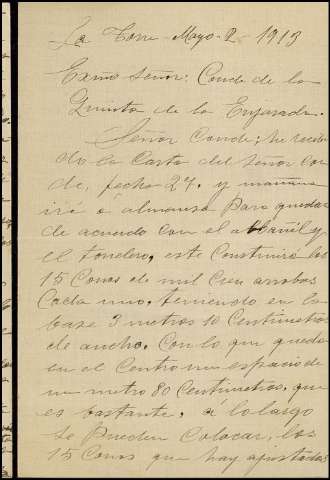 La Torre - Mayo - 2 - 1913
Exmo Señor: Conde de la
Quinta de la Enjarada.
Señor Conde; he recibi
do la Carta del Señor Con
de, fecha 27, y mañana
iré a almansa para quedar
de acuerdo con el albañil y
el tonelero, este Construirá los
15 Conos de mil Cien arrobas
Cada uno, teniendo en la
base 3 metros 10 Centimetros
de ancho, Con lo que queda
en el Centro un espacio de
un metro 80 Centimetros, que
es bastante, a lo largo
se pueden Colocar, los
15 Conos que hay ajustados